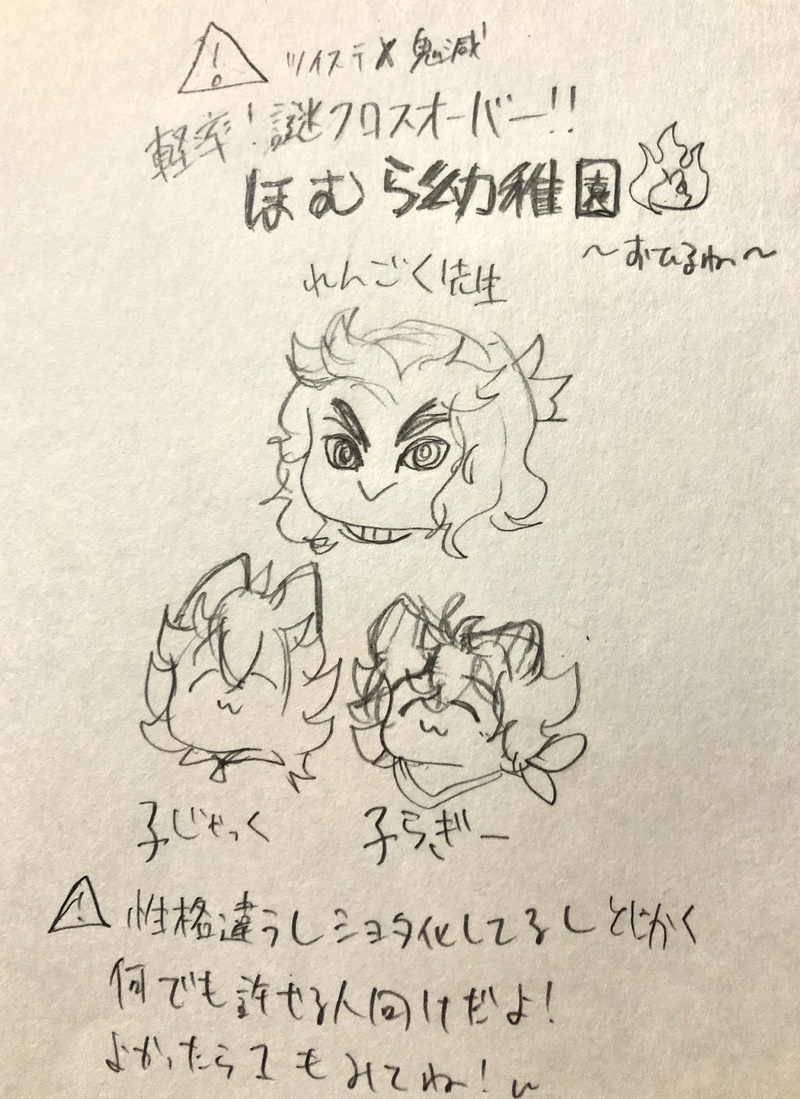 ツイステ×鬼滅
軽率!謎クロスオーバー!!
ほむら幼稚園
〜おひるね〜
れんごく先生
子じゃっく
子らぎー
性格違うしショタ化してるしとにかく
何でも許せる人向けだよ!
よかったら1もみてね!